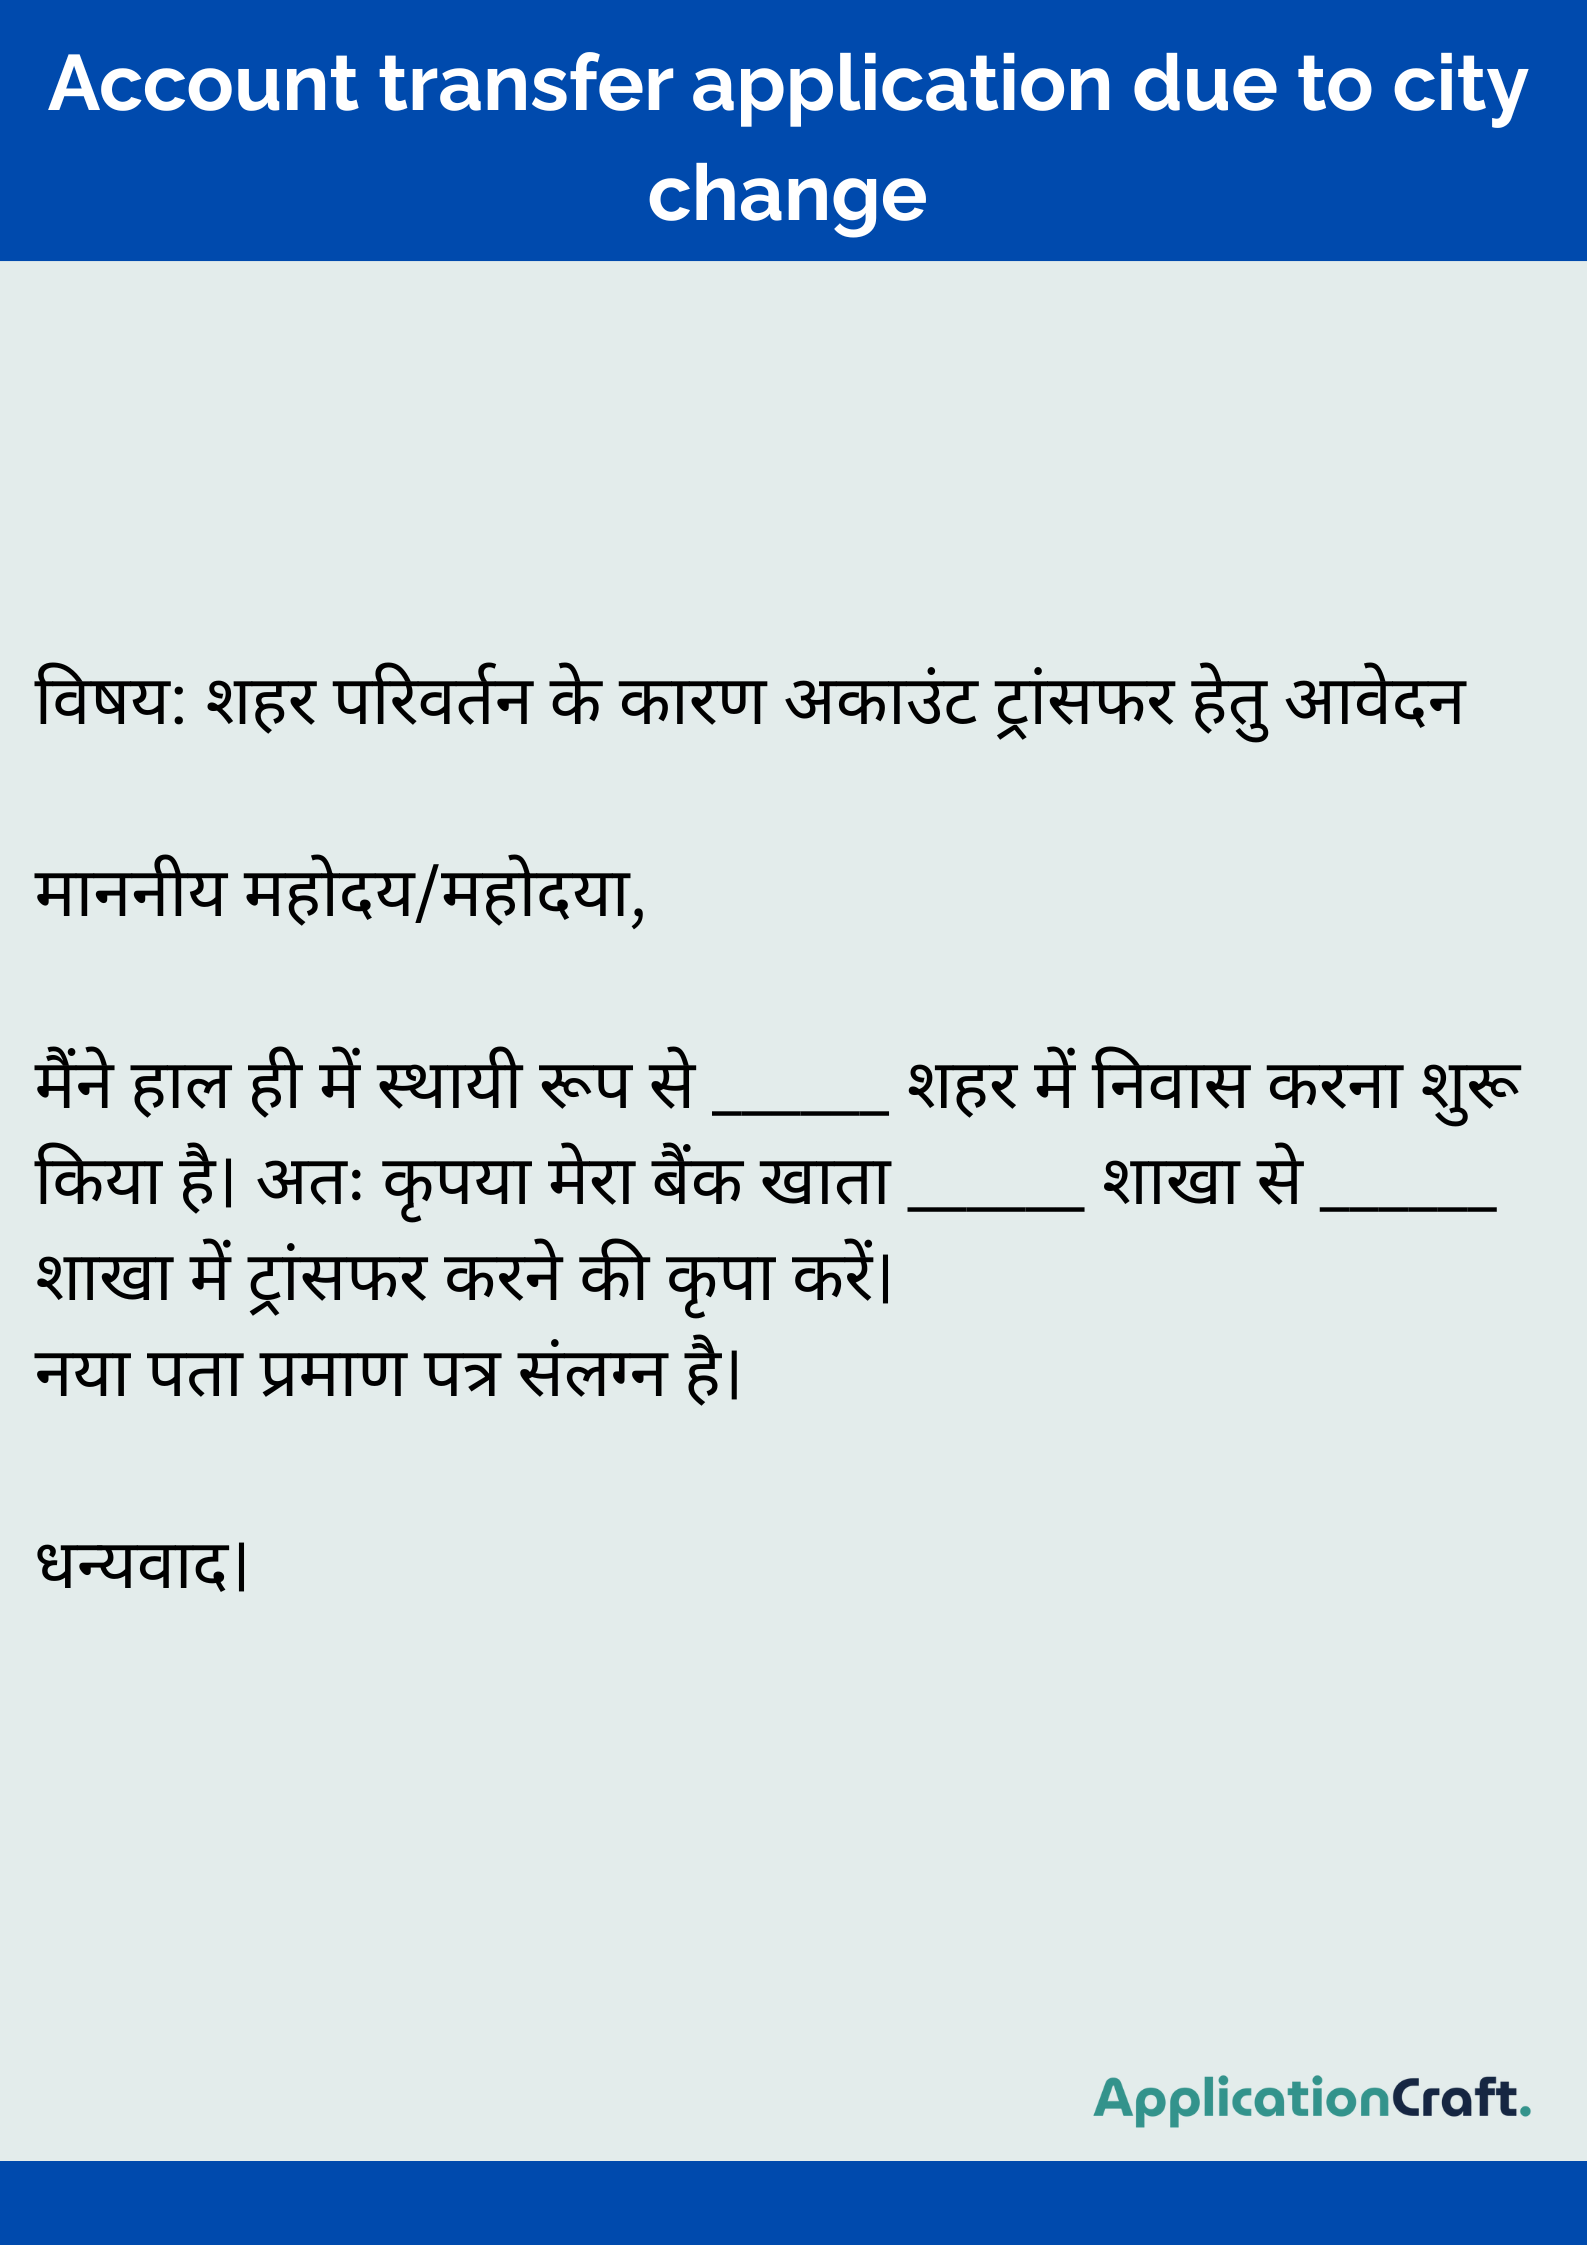 Account transfer application due to city
change
विषय: शहर परिवर्तन के कारण अकाउंट ट्रांसफर हेतु आवेदन
माननीय महोदय/महोदया,
मैंने हाल ही में स्थायी रूप से ______ शहर में निवास करना शुरू
किया है। अतः कृपया मेरा बैंक खाता ______ शाखा से ______
शाखा में ट्रांसफर करने की कृपा करें।
नया पता प्रमाण पत्र संलग्न है।
धन्यवाद।
ApplicationCraft.